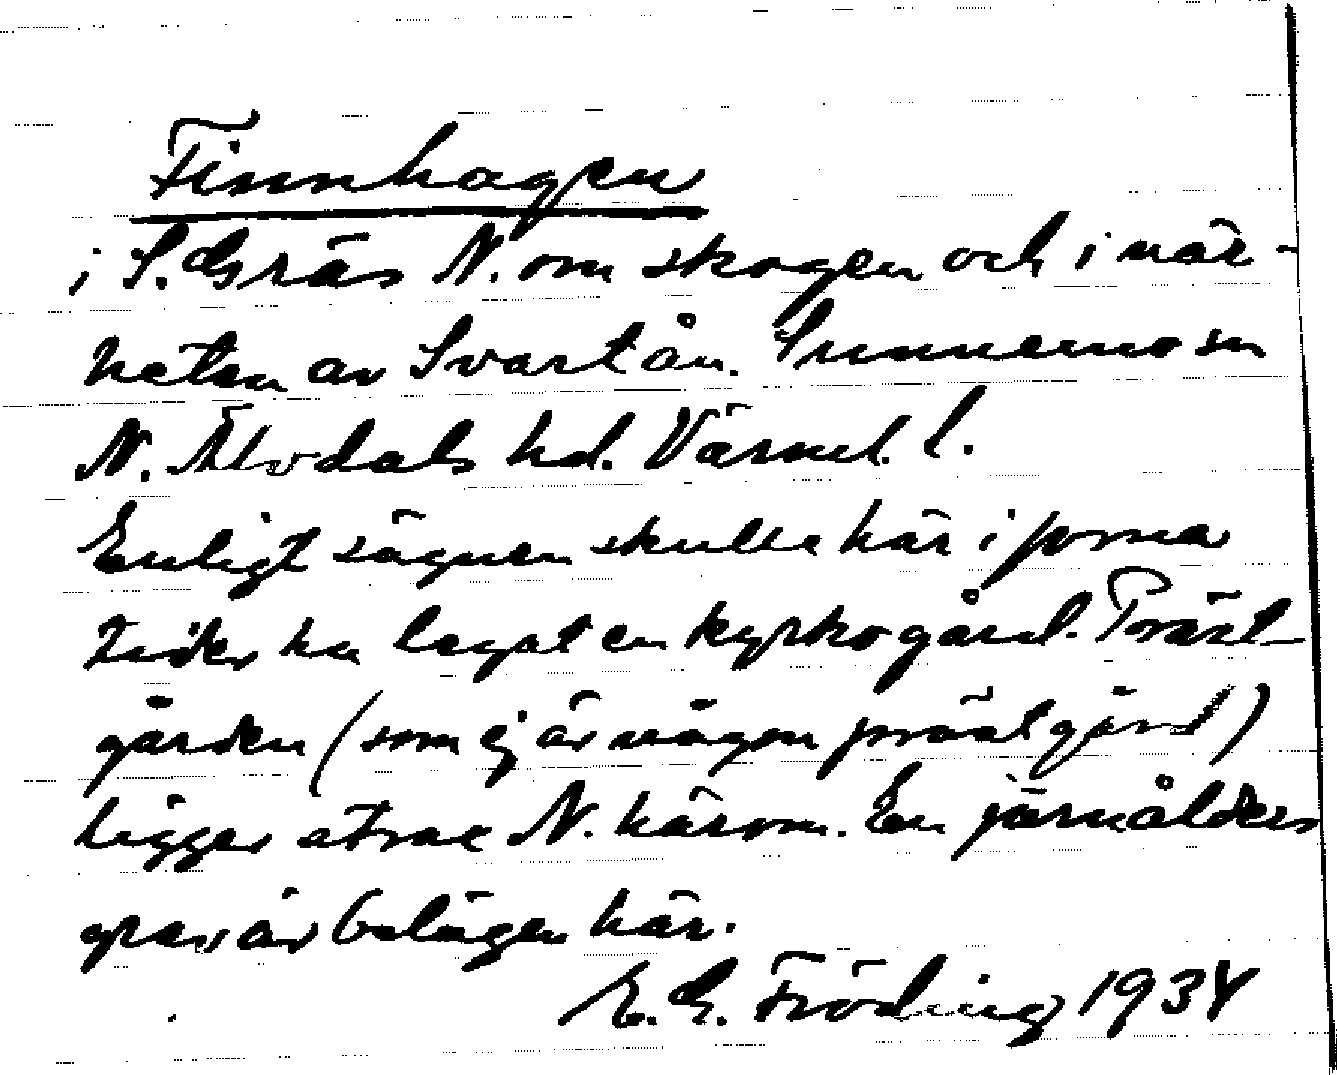 Finnhagen
i S. Gräs N. om skogen och i när-
heten av Svartån. Sunnemo sn
N. Älvdals hd. Värml. l.
Enligt sägnen skulle här i forna
tider ha legat en kyrkogård. Präst-
gården (som ej är någon prästgård)
ligger strax N. härom. En järnålders
grav är belägen här.
E. G. Fröding 1934